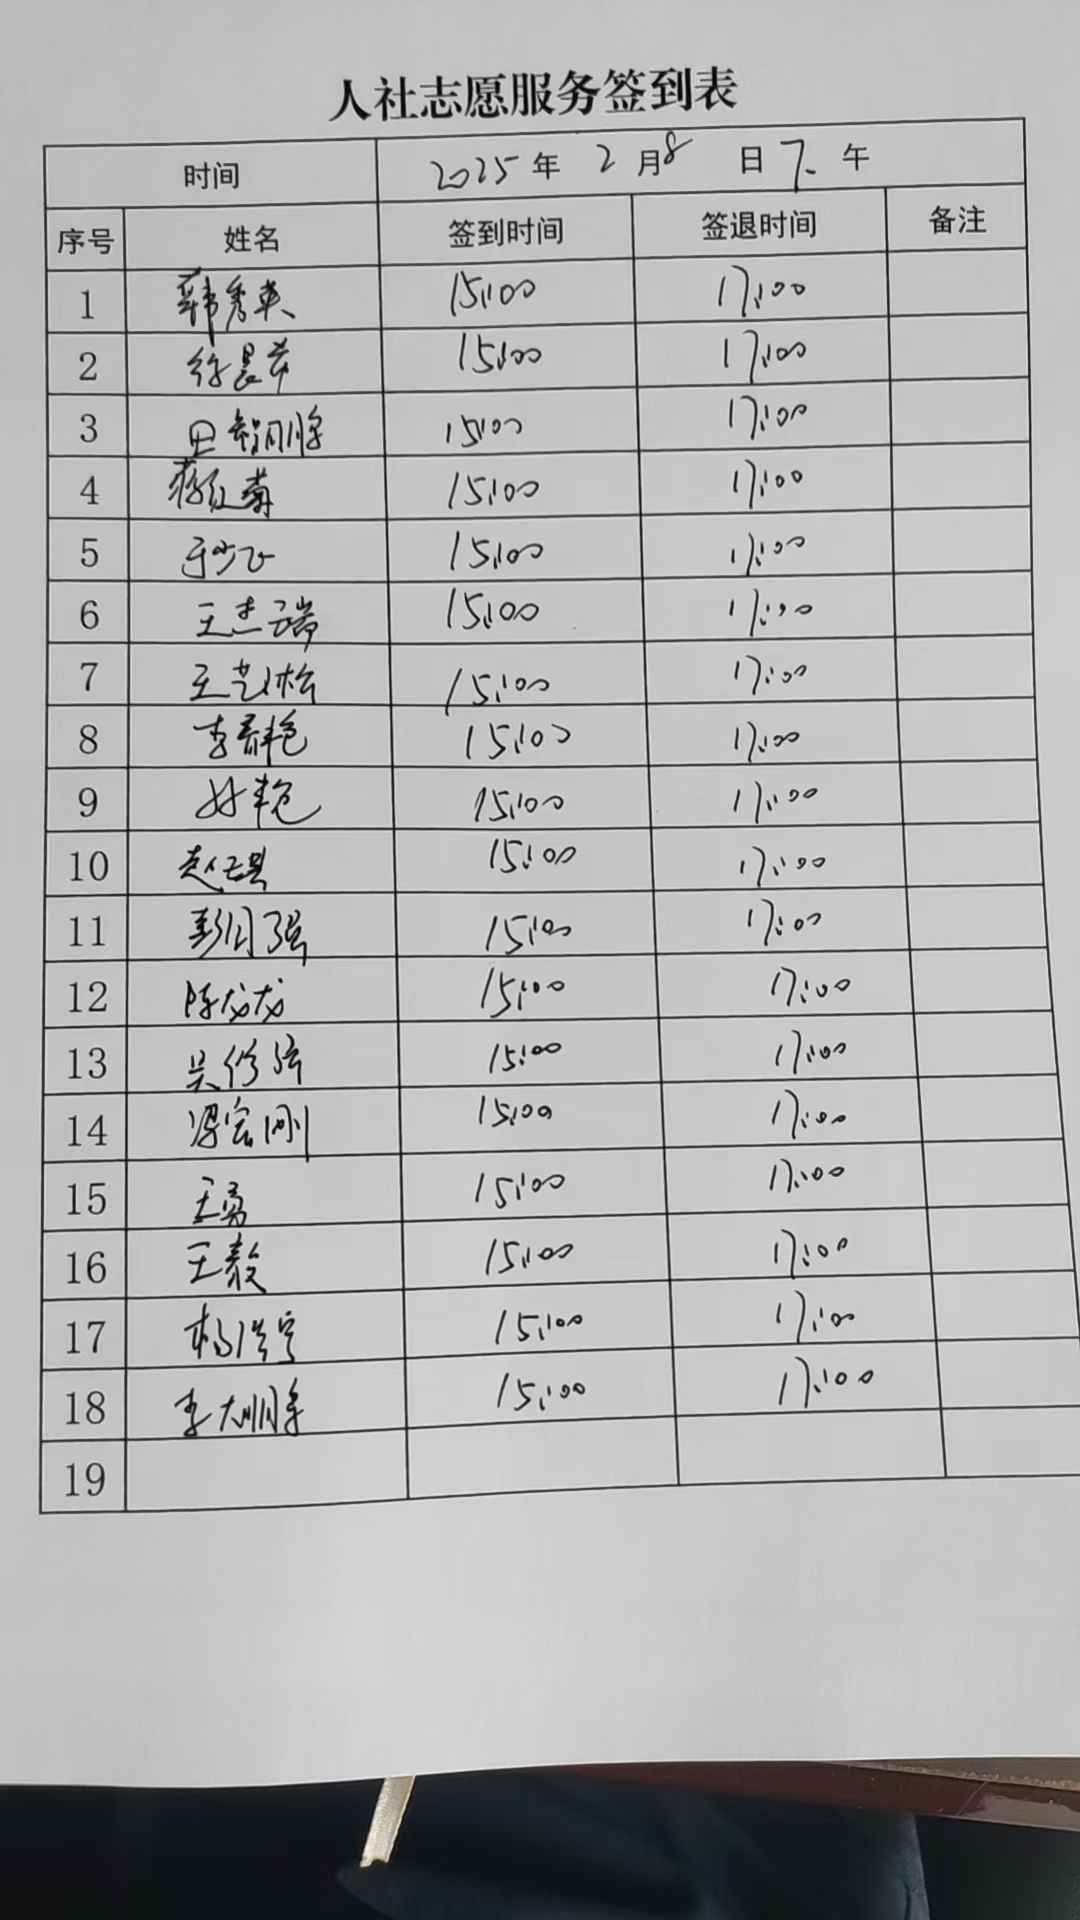 人社志愿服务签到表
时间 2025年 2月8 日下午
序号 姓名 签到时间 签退时间 备注
1 韩秀英 15:00 17:00
2 徐晨 15:00 17:00
3 田智刚 15:00 17:00
4 蒋红菊 15:00 17:00
5 于少飞 15:00 17:00
6 王志瑞 15:00 17:00
7 王艺松 15:00 17:00
8 李春艳 15:00 17:00
9 艳 15:00 17:00
10 赵 15:00 17:00
11 彭自强 15:00 17:00
12 陈龙龙 15:00 17:00
13 吴修 15:00 17:00
14 梁宏刚 15:00 17:00
15 王勇 15:00 17:00
16 王毅 15:00 17:00
17 杨浩宇 15:00 17:00
18 李大鹏 15:00 17:00
19